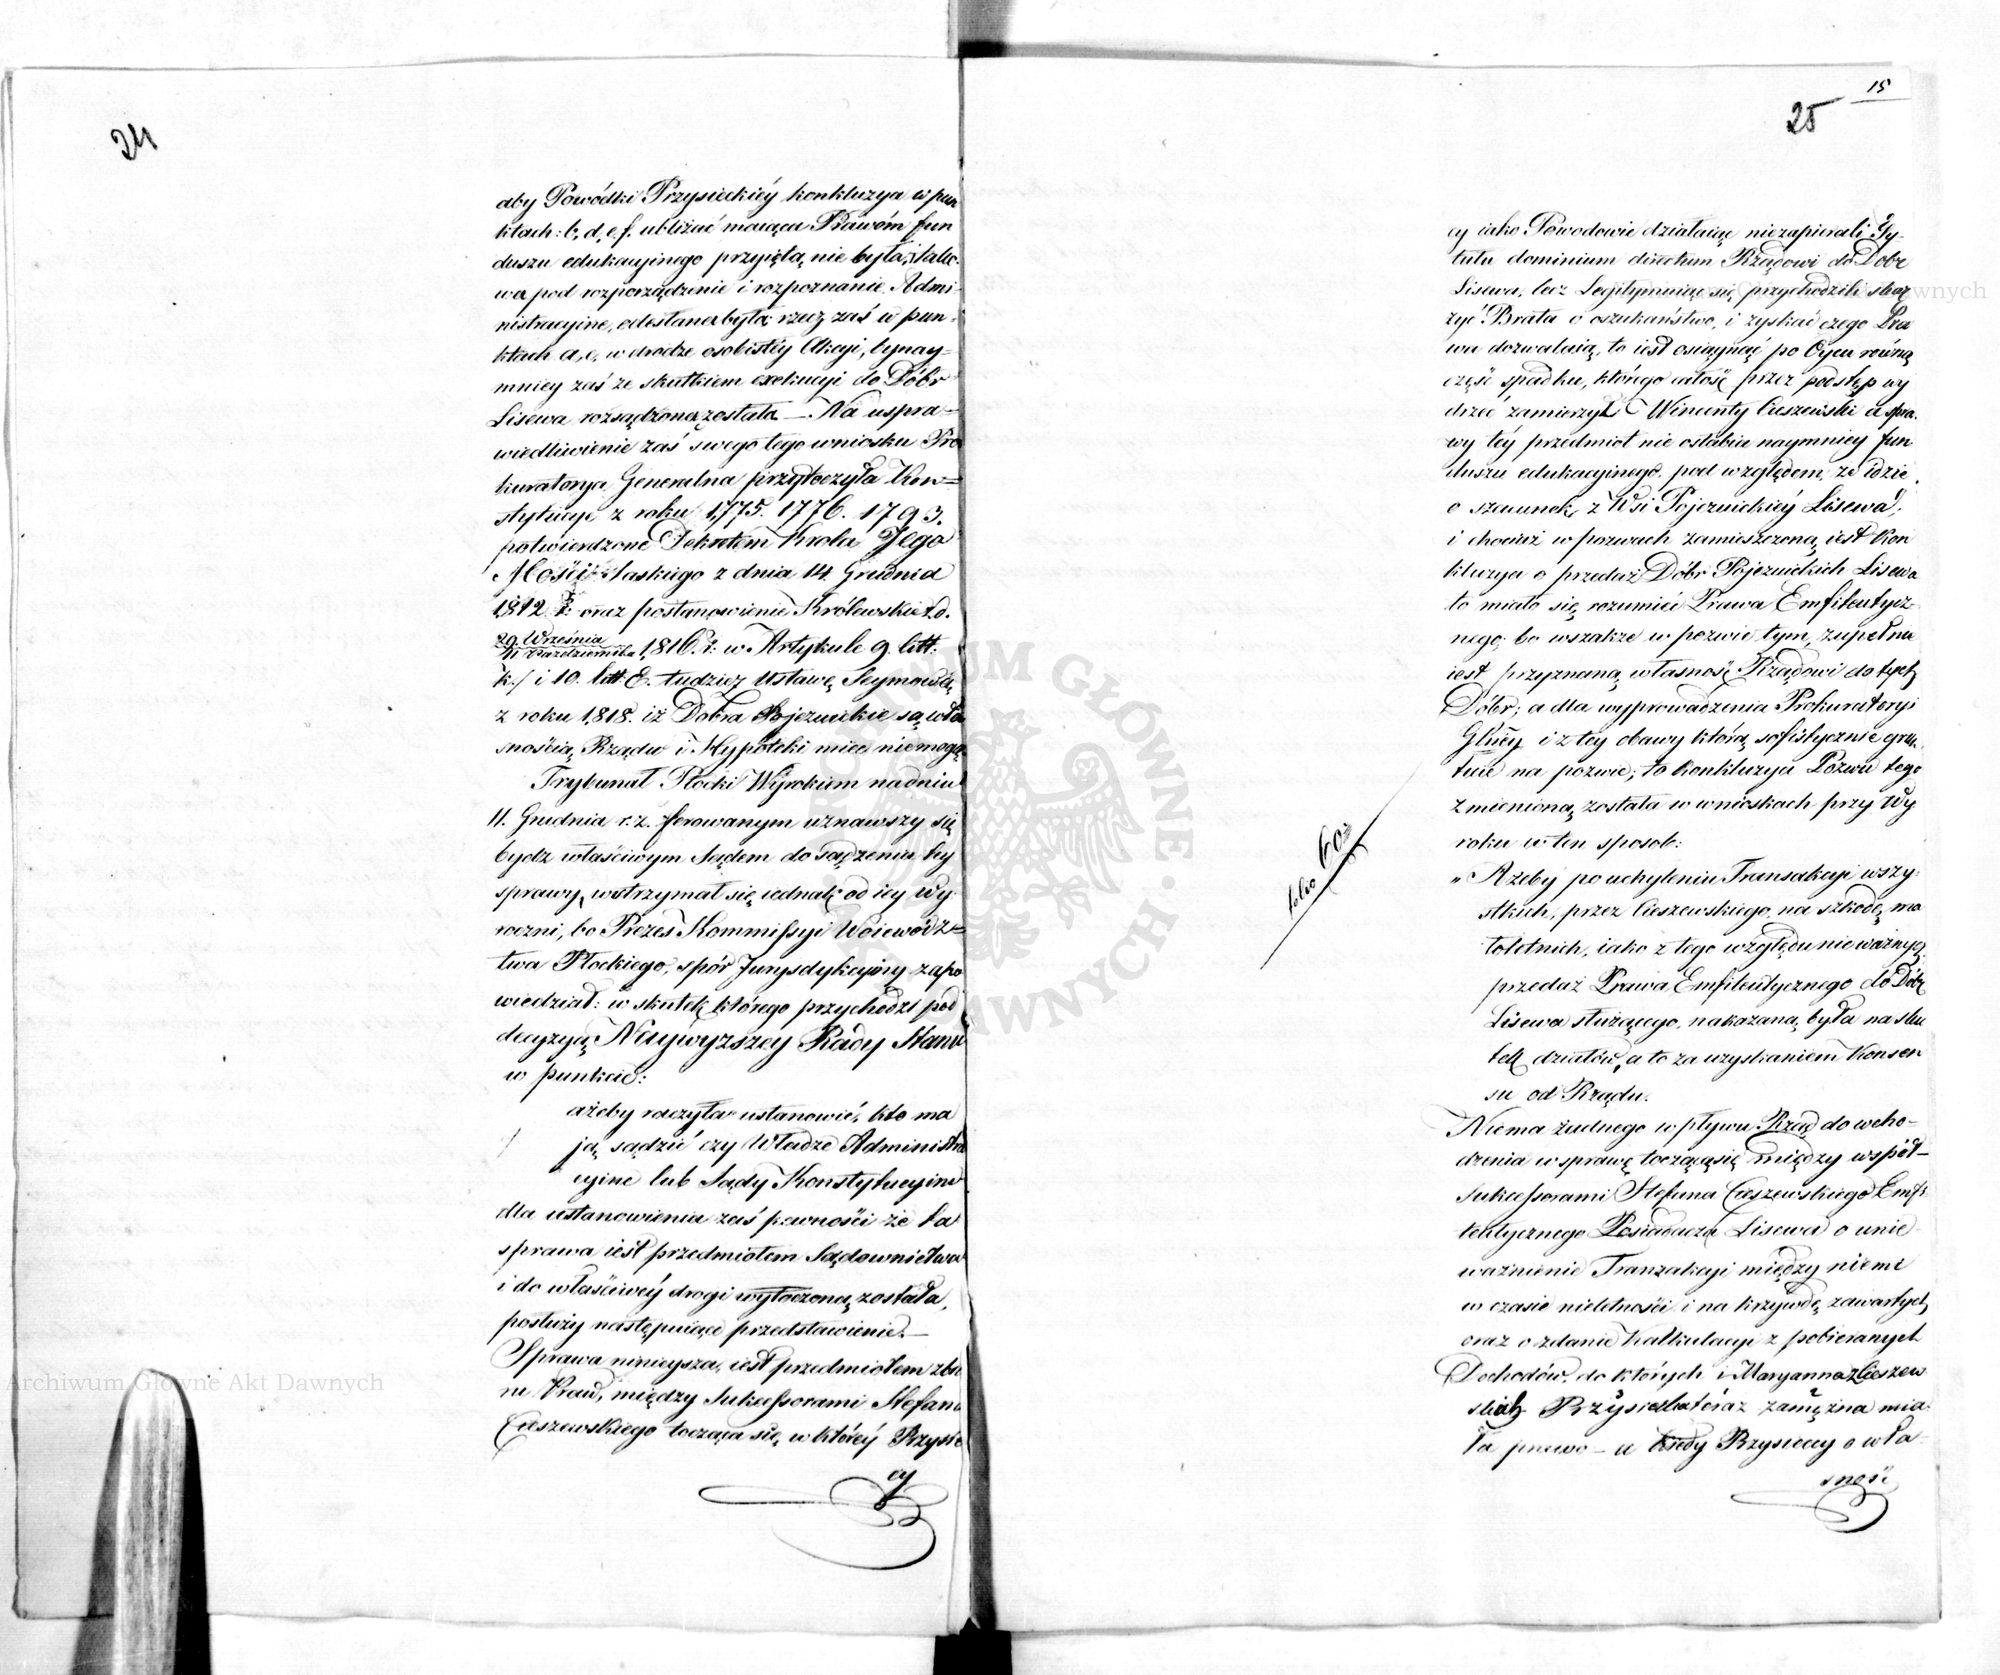 24
aby Powódki Przysieckiéy konkluzya w pun
ktach: b, d, e. f. ubliżać maiąca Prawóm fun
duszu edukacyinego przyiętą nie była, i tako-
wa pod rozporządzenie i rozpoznanie Admi-
nistracyine, odesłana była; rzecz zaś w pun-
ktach a, c, w drodze osobistéy Akcyi, bynay-
mniey zaś ze skutkiem exekucyi do Dóbr
Lisewa rozsądzona została — Na uspra-
wiedliwienie zaś swego tego wniosku Pro
kuratorya Generalna przytoczyła Kon-
stytucye z roku 1775. 1776. 1793.
potwierdzone Dekretem Krola Jego
Mości Saskiego z dnia 14 Grudnia
1812 r: oraz postanowienie Królewskie z d.
29 Września
11 Października 1816. r: w Artykule 9. litt:
k./ i 10. litt. E. tudzież Ustawę Seymową
z roku 1818. iż Dobra Pojezuickie są wła
snością Rządu i Hypoteki mieć niemogą.
Trybunał Płocki Wyrokiem na dniu
11. Grudnia r. z. ferowanym uznawszy się
bydź właściwym Sądem do sądzenia tey
sprawy, wstrzymał się iednak od iey Wy
roczni, bo Prezes Kommissyi Woiewódz-
twa Płockiego, spór Jurysdykcyiny zapo
wiedział: w skutek którego przychodzi pod
decyzyą Naywyższey Rady Stanu
w punkcie:
ażeby raczyła ustanowić, kto ma
ją sądzić czy Władze Administra
cyine lub Sądy Konstytucyine
dla ustanowienia zaś pewności że ta
sprawa iest przedmiotem Sądownictwa
i do właściwéy drogi wytoczoną została,
posłuży następuiące przedstawienie.—
Sprawa ninieysza, iest przedmiotem zbie
gu Praw, między Sukcessorami Stefana
Cieszewskiego tocząca się, w któréy Przysie
cy
15
25
cy iako Powodowie działaiąc niezapierali Ty-
tułu dominium directum Rządowi do Dobr
Lisewa, lecz Legitymuiąc się przychodzili skar
żyć Brata o oszukaństwo, i zyskać czego Pra
wa dozwalaią, to iest osiągnąć po Oycu równą
część spadku, którego całość przez podstęp wy
drzeć zamierzył Wincenty Cieszewski a spra
wy téy przedmiot nie osłabia naymniey fun
duszu edukacyinego pod względem, że idzie
o szacunek z Wsi Pojezuickiéy Lisewa;
i chociaż w pozwach zamieszczoną iest kon
kluzya o przedaż Dóbr Pojezuickich Lisewa
to miało się rozumieć Prawa Emfiteutycz
nego; bo wszakże w pozwie tym, zupełna
iest przyznaną własność Rządowi do tych
Dóbr; a dla wyprowadzenia Prokuratoryi
Glney i z tey obawy którą sofistycznie grun
tuie na pozwie; to konkluzya Pozwu tego
zmienioną została w wnioskach przy Wy
roku w ten sposob:
„ Ażeby po uchyleniu Transakcyi wszy
stkich, przez Cieszewskiego, na szkodę ma
łoletnich, iako z tego względu nie ważnych
przedaż Prawa Emfiteutycznego do Dóbr
Lisewa służącego, nakazaną była na sku
tek działów, a to za uzyskaniem Konsen
su od Rządu.
Niema żadnego wpływu Rząd do wcho-
dzenia w sprawę toczącą się między współ-
Sukcessorami Stefana Cieszewskiego Emfi
teutycznego Posiadacza Lisewa o unie-
ważnienie Tranzakcyi między niemi
w czasie nieletności i na krzywdę zawartych
oraz o zdanie Kalkulacyi z pobieranych
Dochodów, do których i Maryanna z Cieszew
skich Przysiecka teraz zamężna mia-
ła prawo — a kiedy Przysieccy o wła-
sność
Archiwum Główne Akt Dawnych